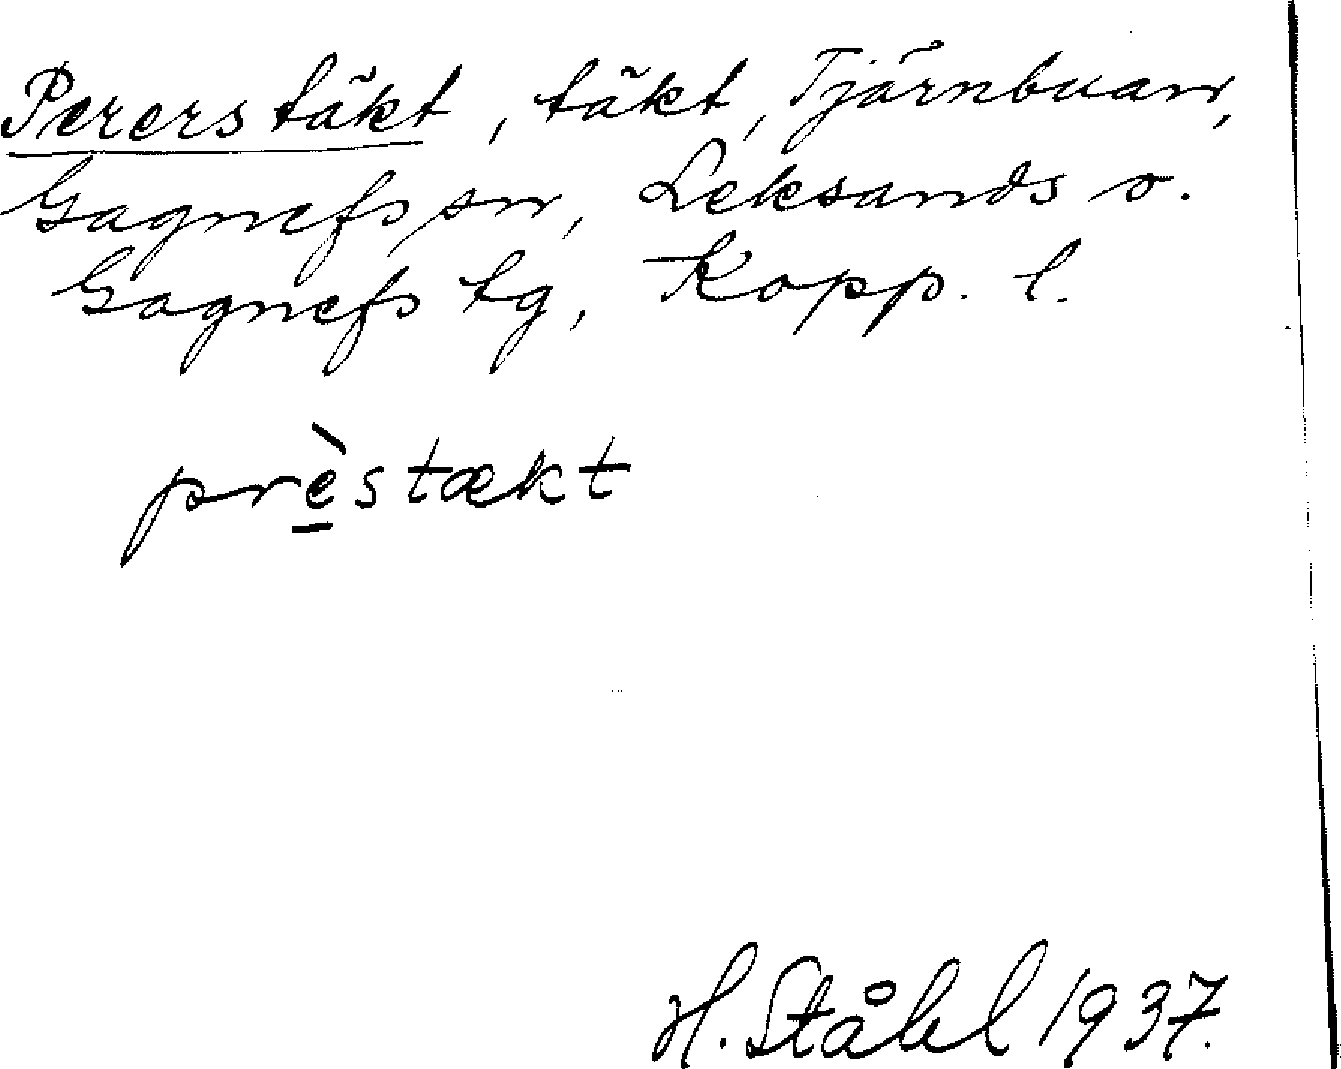 Pererstäkt, täkt, Tjärnbuan,
Gagnefs sn, Leksands o.
Gagnefs tg, Kopp. l.
prèstækt
H. Ståhl 1937.